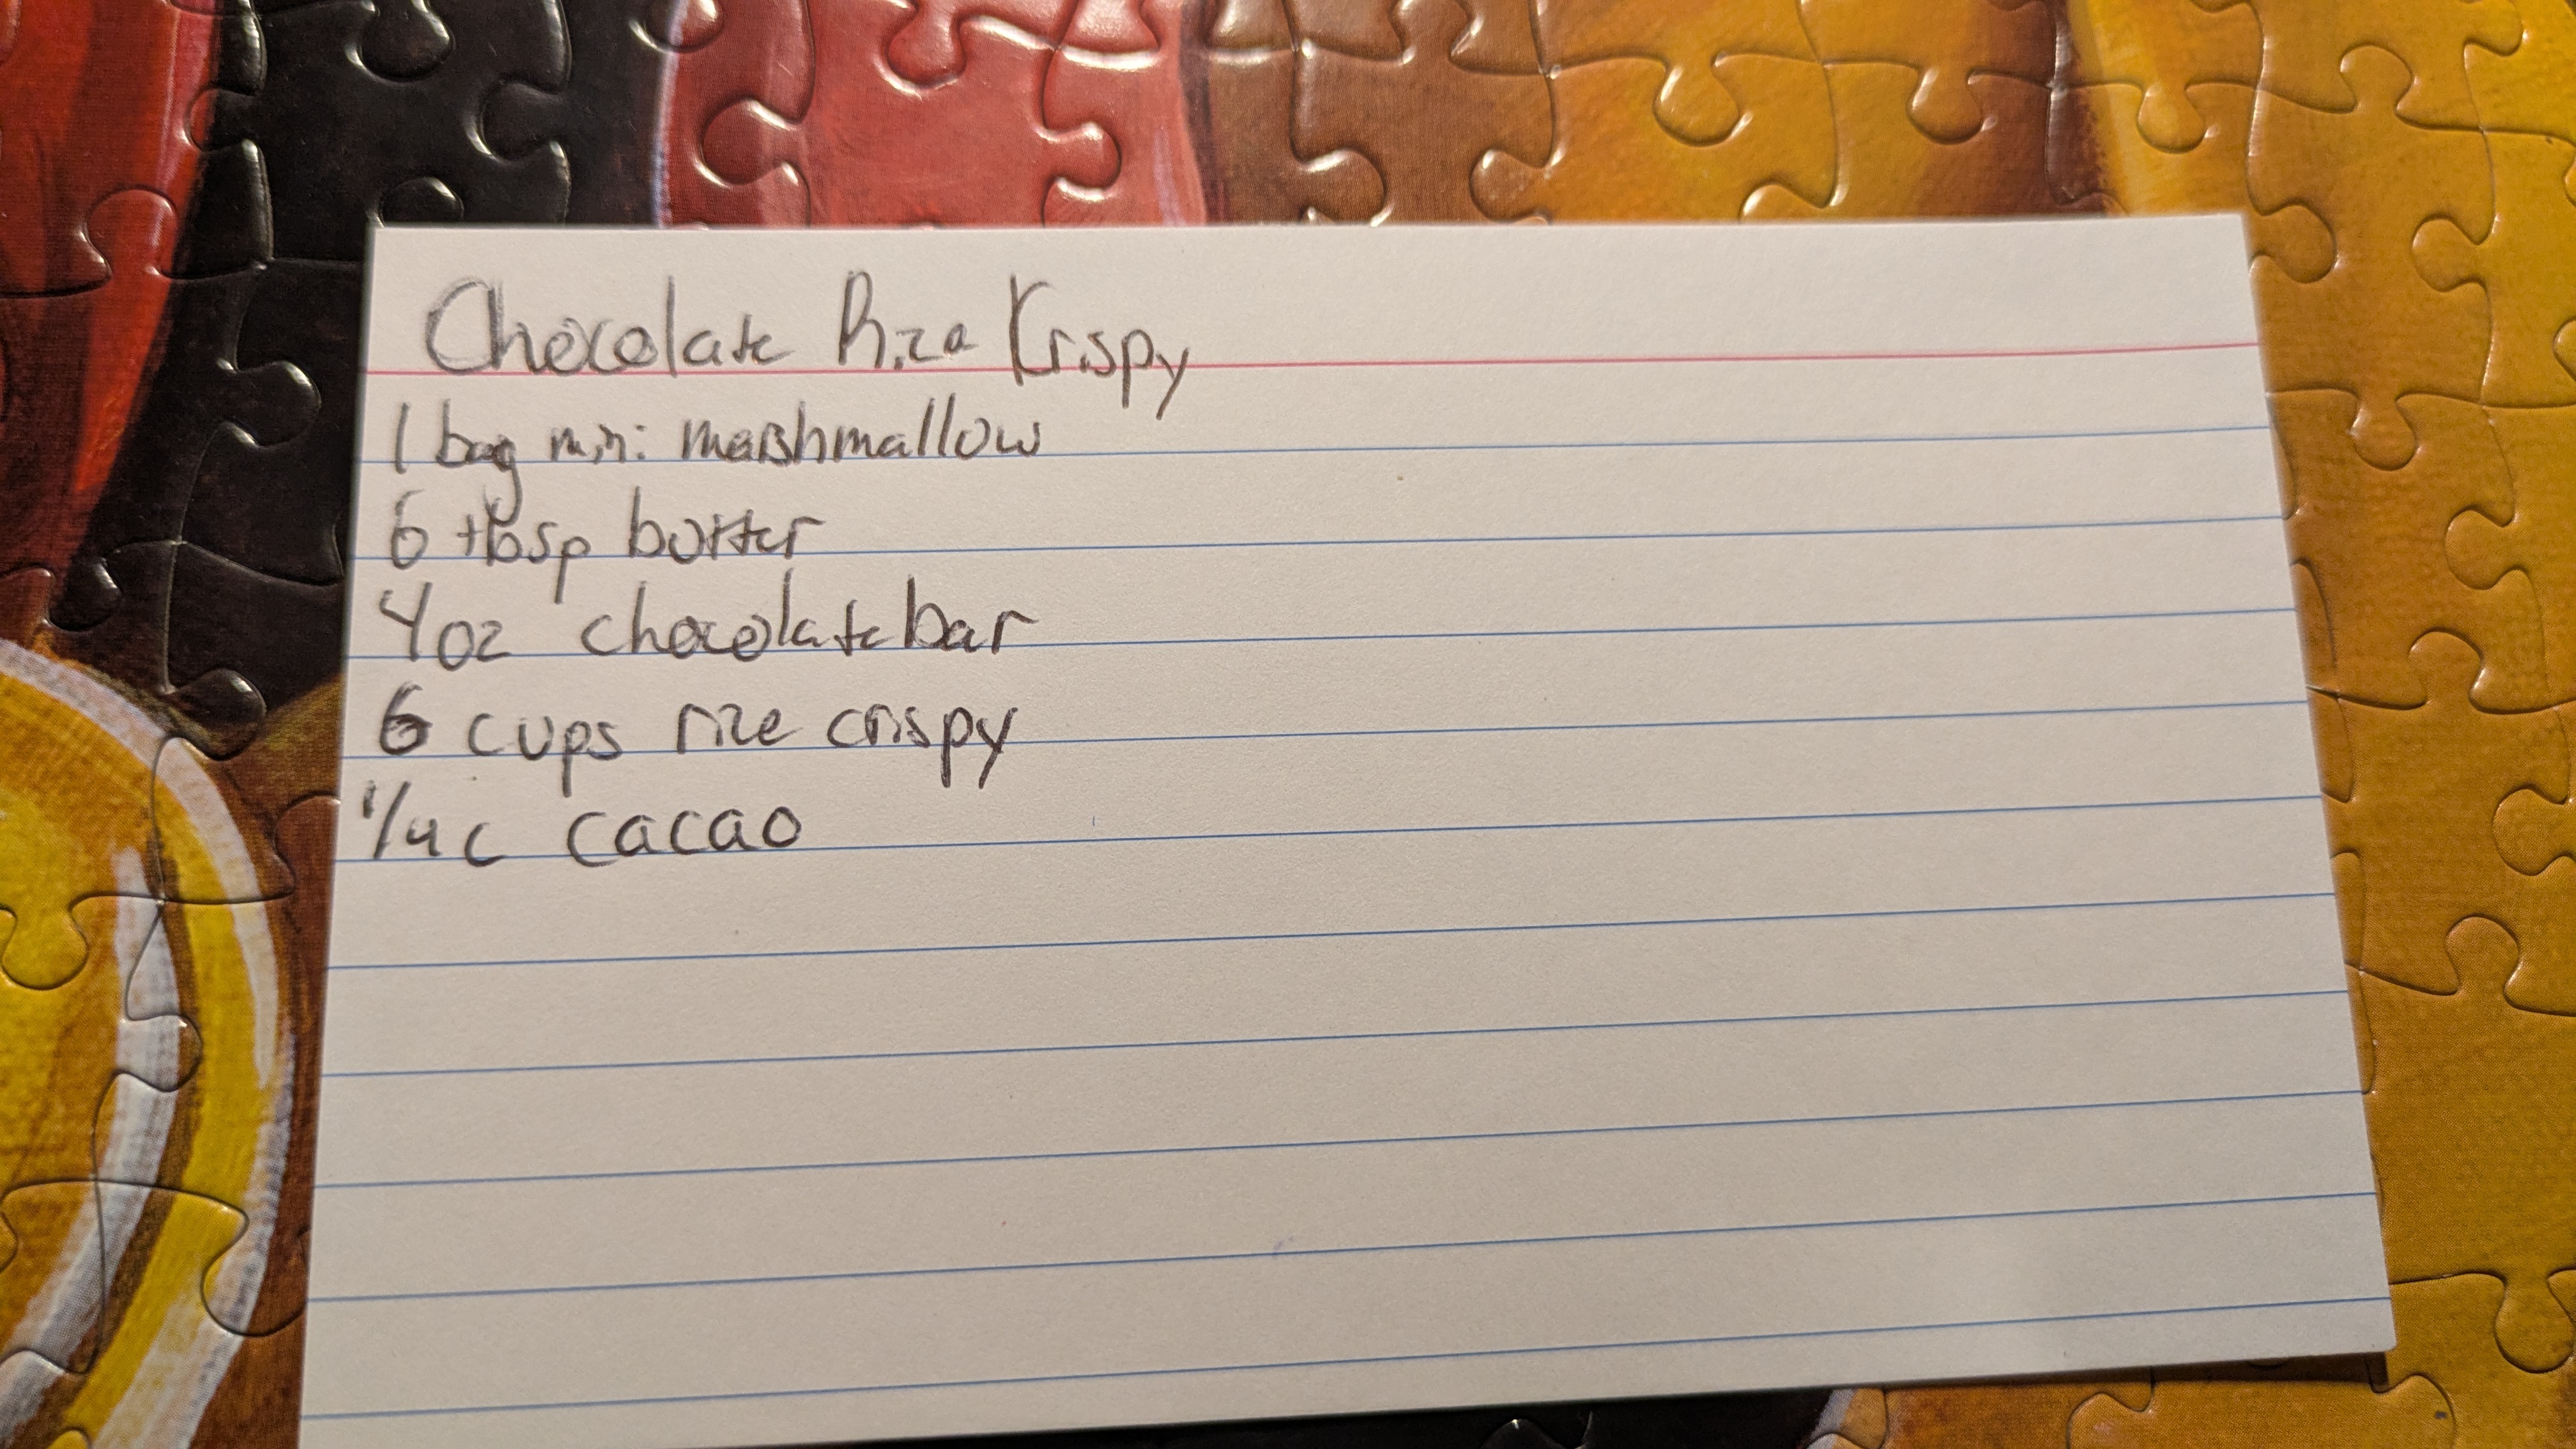 Chocolate Rize Krispy
1 bag mini marshmallow
6 tbsp butter
4oz chocolate bar
6 cups rize crispy
1/4 c cacao